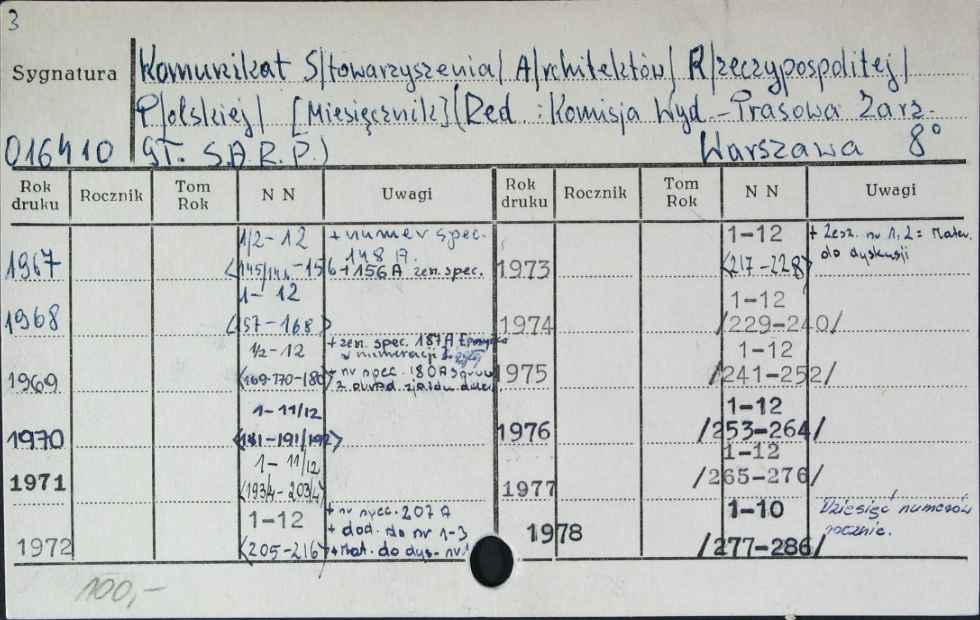 3
Sygnatura
Komunikat S/towarzyszenia/ A/rchitektów/ R/zeczypospolitej/
P/olskiej/ [Miesięcznik] (Red.: Komisja Wyd.-Prasowa Zarz.
016410 GŁ. S.A.R.P.) Warszawa 8°
Rok druku Rocznik Tom Rok N N Uwagi Rok druku Rocznik Tom Rok N N Uwagi
1967 1/2-12 + numer spec. 148 A
<145/146-156 +156A zesz. spec.
1968 1-12
<157-168>
1969 1/2-12 + zesz. spec. 187A
w numeracji
<169-170-180> + nr spec. 180A
1970 1-11/12
<181-191/192>
1971 1-11/12
<193/4-203/4>
1972 1-12 + nr spec. 207A
+ dod. do nr 1-3
<205-216> + Mat. do dys. nr
1973 1-12 + Zesz. nr 1,2 = Mater.
<217-228> do dyskusji
1974 1-12
/229-240/
1975 1-12
/241-252/
1976 1-12
/253-264/
1977 1-12
/265-276/
1978 1-10 Dziesięć numerów
/277-286/ rocznie.
100,-